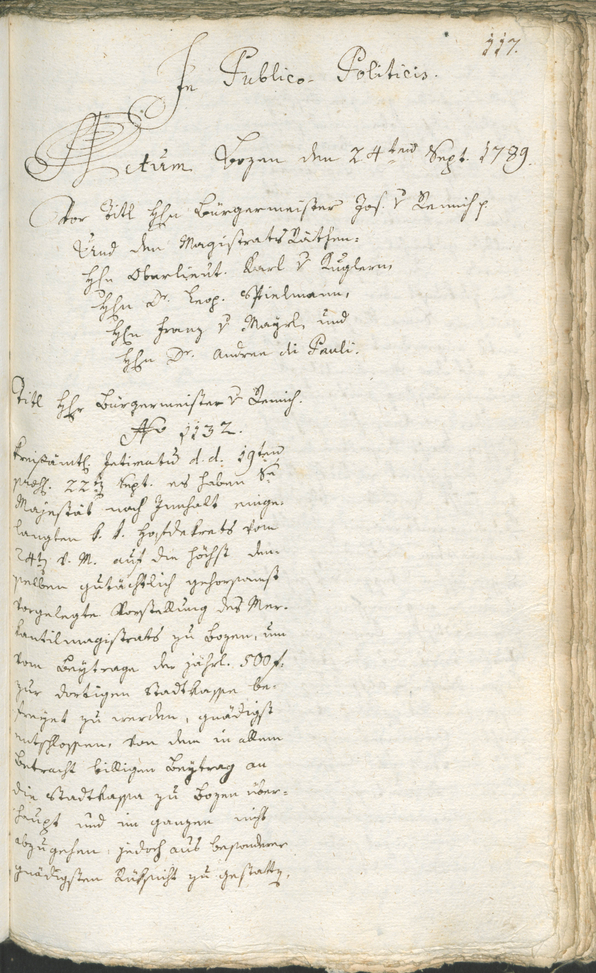 117.
In Publico-Politicis.
Actum Bozen den 24ten Sept. 1789.
Vor Titl Hhn Bürgermeister Jos. v Remich p
Und den Magistrats Räthen:
Hhn Oberlieut. Karl v Kuglern,
Hhn Dr. Leop. Spielmann,
Hhn Franz v Mayrl, und
Hhn Dr. Andree di Pauli.
Titl Hhr Bürgermeister v Remich.
No 1132.
Kreisämtl. Intimatum d.d. 19ten
praes. 22ten Sept. es haben Se
Majestät nach Innhalt einge-
langten k. k. Hofdekrets vom
24ten v. M. auf die höchst den-
selben gutächtlich gehorsamst
vorgelegte Vorstellung des Mer-
kantilmagistrats zu Bozen, um
vom Beytrage der jährl. 500 f.
zur dortigen Stadtkasse be-
freyet zu werden, gnädigst
entschlossen, von dem in allem
Betracht billigen Beytrag an
die Stadtkassa zu Bozen über-
haupt und im ganzen nicht
abzugehen, jedoch aus besonderer
gnädigsten Rücksicht zu gestatten,